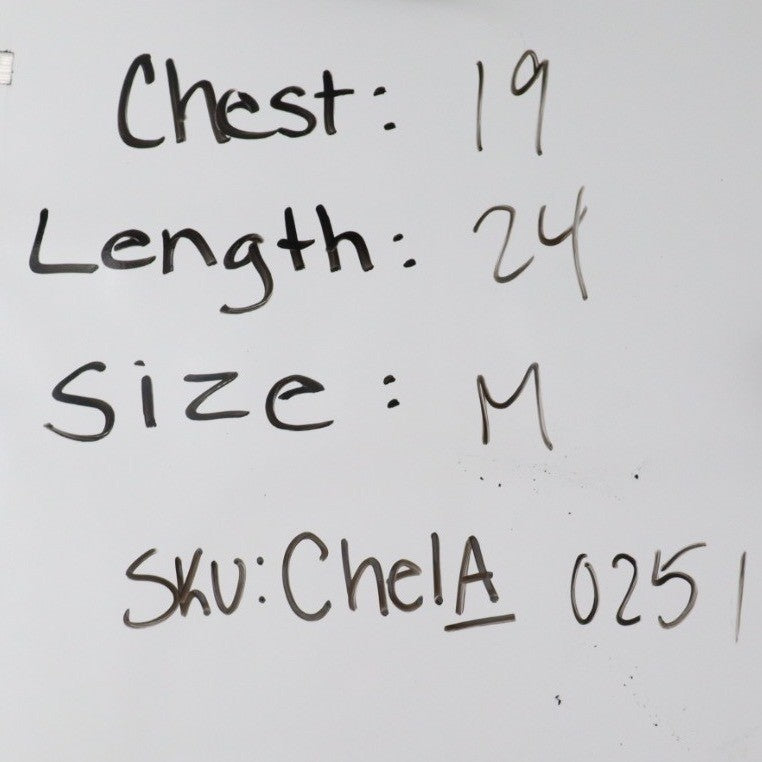 Chest: 19
Length: 24
Size: M
SKU: ChelA 0251